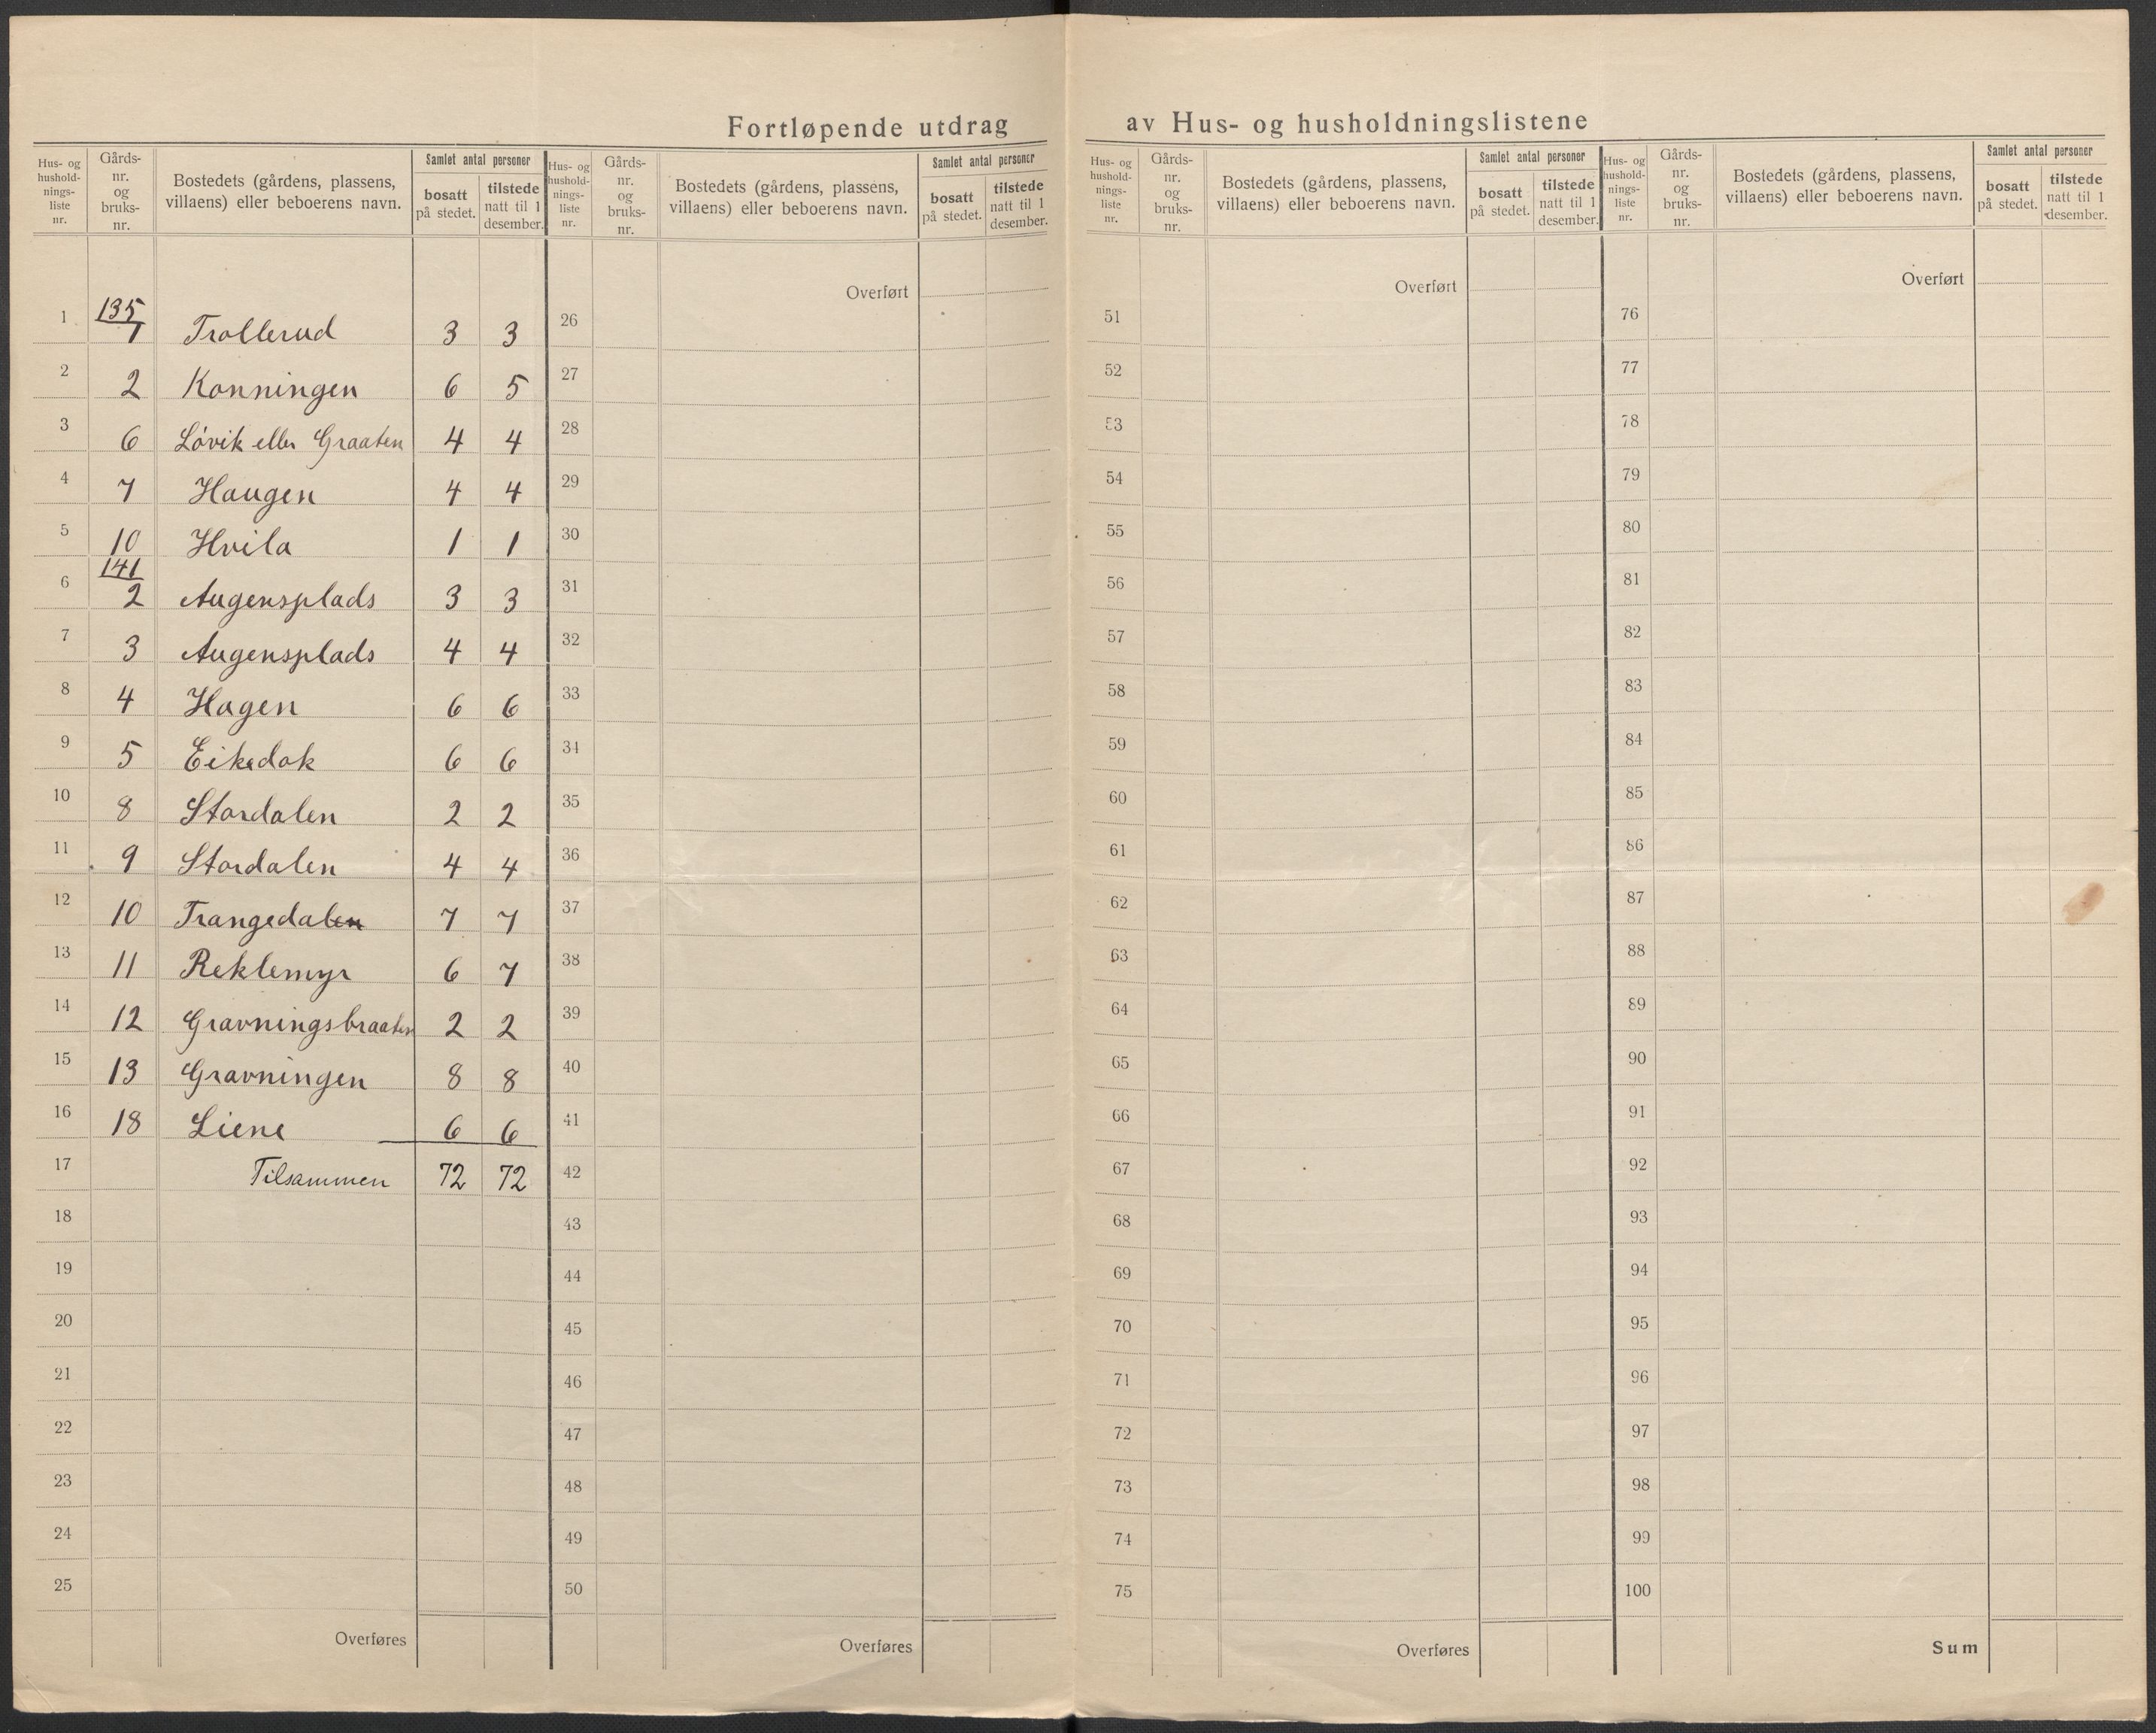 Fortløpende utdrag av Hus- og husholdningslistene
Hus- og hushold-nings-liste nr. | Gårds-nr. og bruks-nr. | Bostedets (gårdens, plassens, villaens) eller beboerens navn. | Samlet antal personer | bosatt på stedet. | tilstede natt til 1 desember.
1 135/1 Trollerud 3 3
2 2 Konningen 6 5
3 6 Løvik eller Graaten 4 4
4 7 Haugen 4 4
5 10 Hvila 1 1
6 141/2 Augensplads 3 3
7 3 Augensplads 4 4
8 4 Hagen 6 6
9 5 Eikedok 6 6
10 8 Stordalen 2 2
11 9 Stordalen 4 4
12 10 Trangedalen 7 7
13 11 Reklemyr 6 7
14 12 Gravningsbraaten 2 2
15 13 Gravningen 8 8
16 18 Liene 6 6
17 Tilsammen 72 72
18
19
20
21
22
23
24
25
Overføres
Hus- og hushold-nings-liste nr. | Gårds-nr. og bruks-nr. | Bostedets (gårdens, plassens, villaens) eller beboerens navn. | Samlet antal personer | bosatt på stedet. | tilstede natt til 1 desember.
Overført
26
27
28
29
30
31
32
33
34
35
36
37
38
39
40
41
42
43
44
45
46
47
48
49
50
Overføres
Hus- og hushold-nings-liste nr. | Gårds-nr. og bruks-nr. | Bostedets (gårdens, plassens, villaens) eller beboerens navn. | Samlet antal personer | bosatt på stedet. | tilstede natt til 1 desember.
Overført
51
52
53
54
55
56
57
58
59
60
61
62
63
64
65
66
67
68
69
70
71
72
73
74
75
Overføres
Hus- og hushold-nings-liste nr. | Gårds-nr. og bruks-nr. | Bostedets (gårdens, plassens, villaens) eller beboerens navn. | Samlet antal personer | bosatt på stedet. | tilstede natt til 1 desember.
Overført
76
77
78
79
80
81
82
83
84
85
86
87
88
89
90
91
92
93
94
95
96
97
98
99
100
Sum